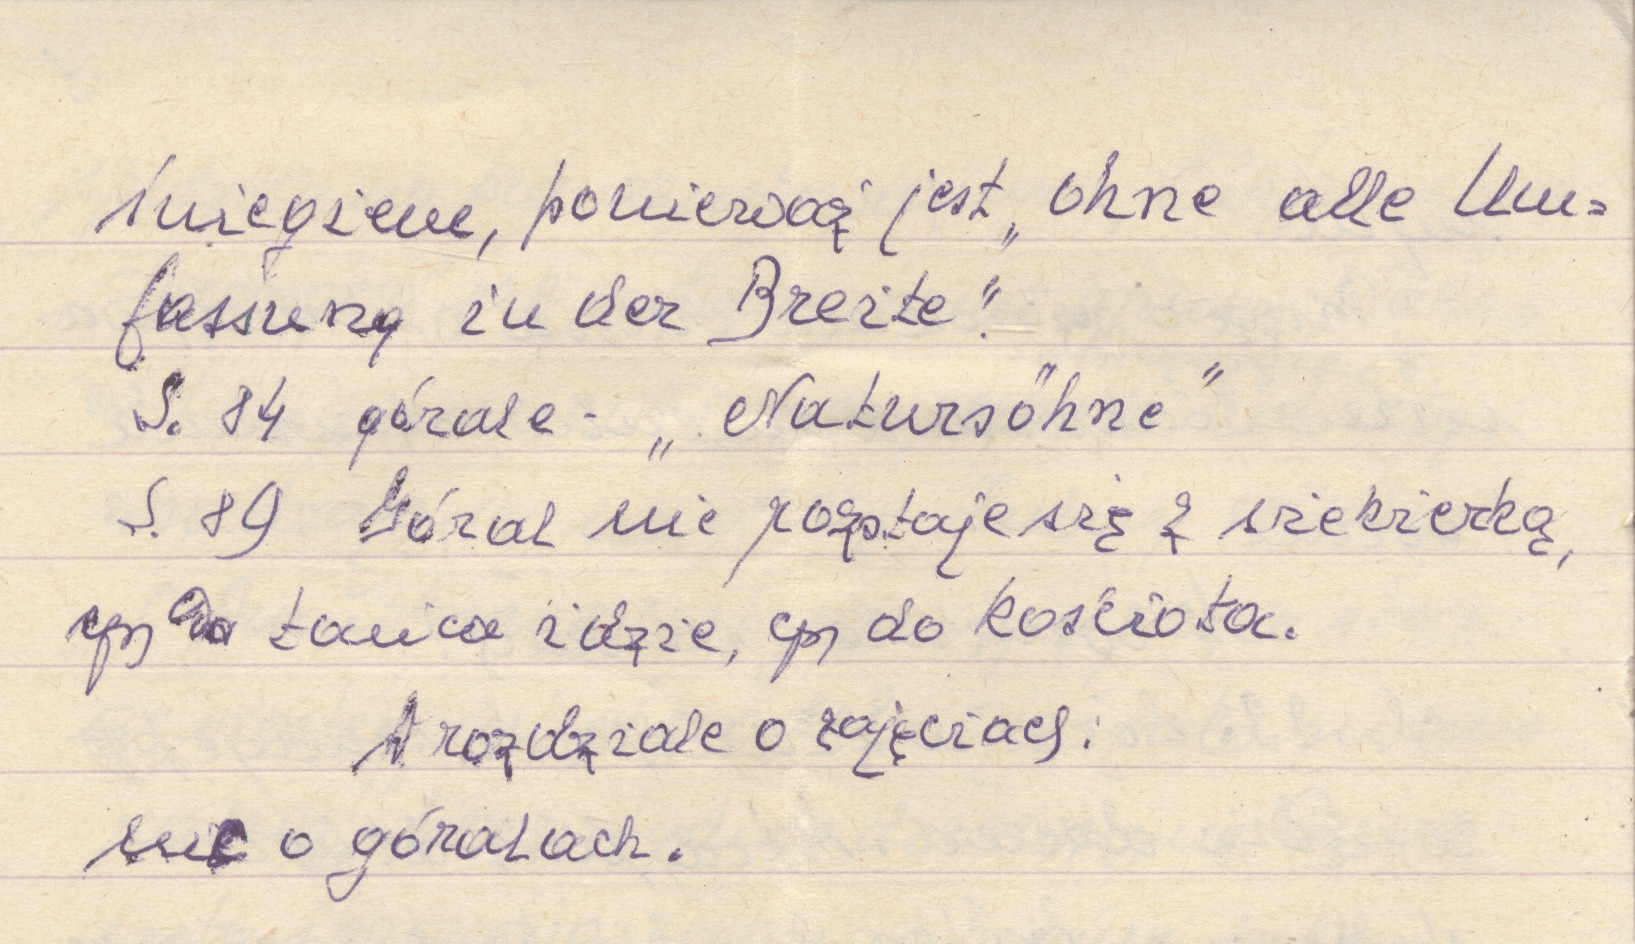 śniegiem, ponieważ jest „ohne alle Um=
fassung in der Breite".
S. 84 górale - „Natursöhne"
S. 89 Góral nie rozstaje się z siekierką,
czy do tańca idzie, czy do kościoła.
W rozdziale o zajęciach:
nic o góralach.